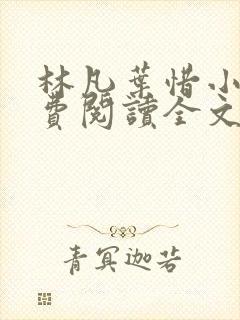 林凡葉惜小
費閱讀全文
青冥迦若